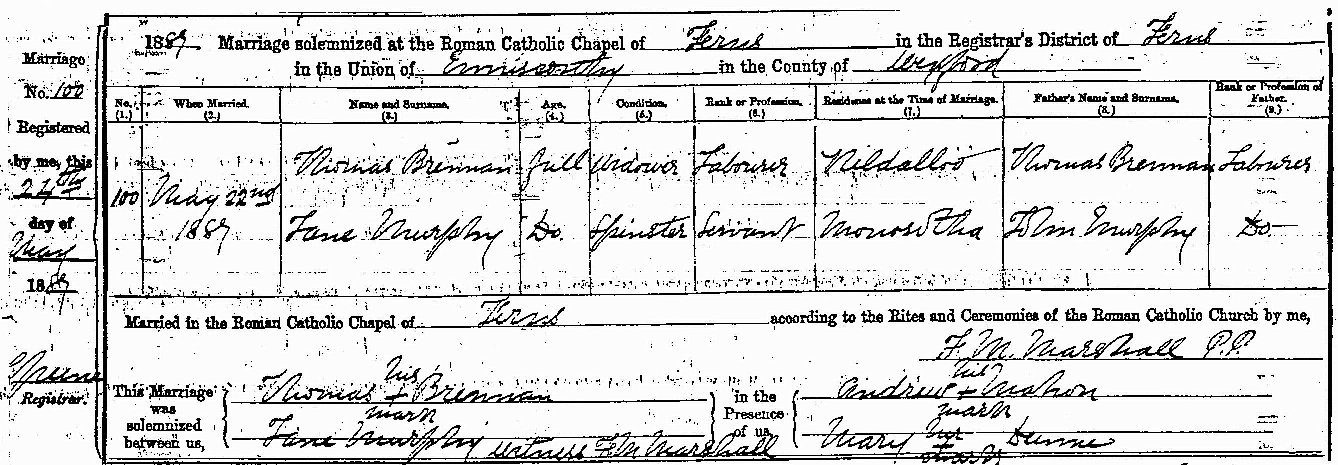 1889 Marriage solemnized at the Roman Catholic Chapel of Ferns in the Registrar's District of Ferns
in the Union of Enniscorthy in the County of Wexford
Marriage
No. 100
Registered
by me, this
24th
day of
May
1889
Greene
Registrar.
No. (1.) When Married. (2.) Name and Surname. (3.) Age. (4.) Condition. (5.) Rank or Profession. (6.) Residence at the Time of Marriage. (7.) Father's Name and Surname. (8.) Rank or Profession of Father. (9.)
100 May 22nd 1889
Thomas Brennan full Widower Labourer Kildalloo Thomas Brennan Labourer
Jane Murphy Do. Spinster Servant John Murphy Do
Married in the Roman Catholic Chapel of Ferns according to the Rites and Ceremonies of the Roman Catholic Church by me,
F. M. Marshall P.P.
This Marriage was solemnized between us,
Thomas his + mark Brennan
Jane Murphy witness F. M. Marshall
in the Presence of us,
Andrew his + mark Mahon
Mary her + mark Dunne